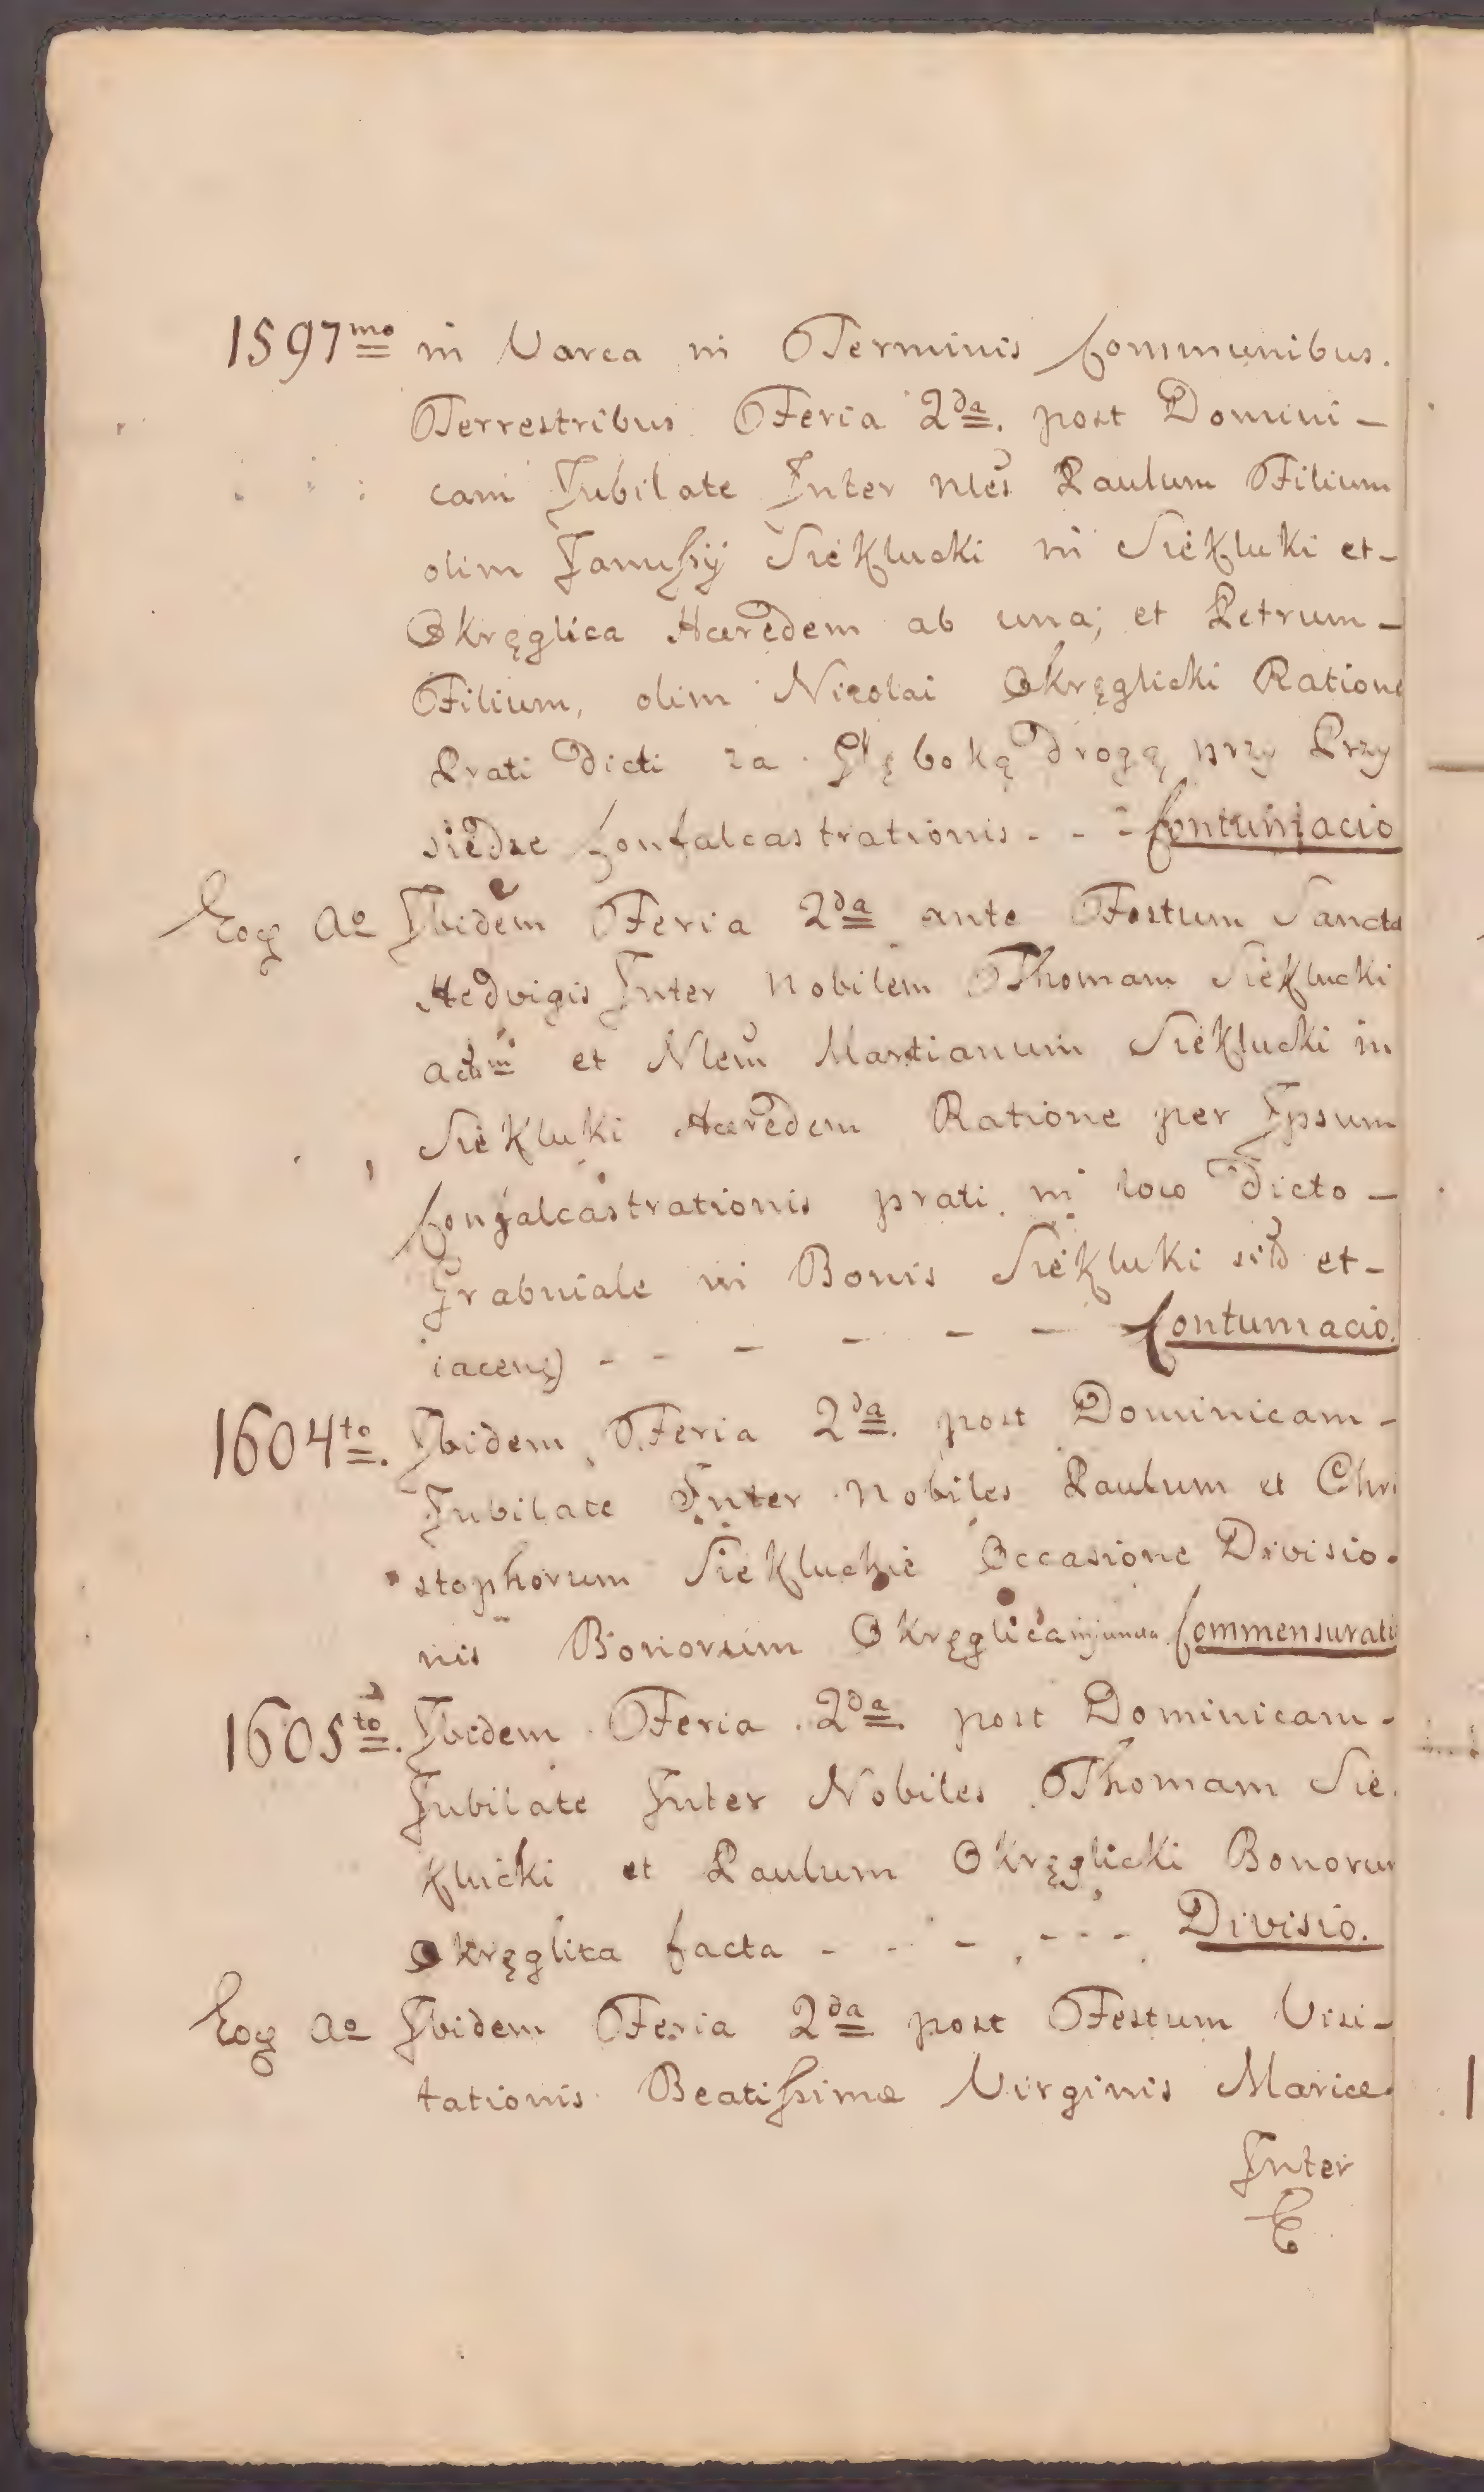 1597mo in Varca in Terminis Communibus.
Terrestribus Feria 2da. post Domini-
cam Jubilate Inter Nles Paulum Filium
olim Janussij Siekłucki in Siekłuki et-
Okręglica Hæredem ab una; et Petrum-
Filium, olim Nicolai Okręglicki Ratione
Prati dicti za Głęboką drogą przy Przy
siedze Confalcastrationis - - - Contumacio
Eoq Ao Ibidem Feria 2da ante Festum Sancta
Hedvigis Inter Nobilem Thomam Siekłucki
et Nlem Martianum Siekłucki in
Siekłuki Hæredem Ratione per Ipsum
Confalcastrationis prati in loco dicto -
Grabniale in Bonis Siekłuki et-
- - - - - - Contumacio.
1604to. Ibidem Feria 2da. post Dominicam-
Jubilate Inter Nobiles Paulum et Chri
stophorum Siekluckie Occasione Divisio-
nis Bonorum Okręglica injuncta Commensuratio
1605to. Ibidem Feria 2da post Dominicam-
Jubilate Inter Nobiles Thomam Sie.
kłucki et Paulum Okręglicki Bonorum
Okręglica facta - - - - - - Divisio.
Eoq Ao Ibidem Feria 2da post Festum Visi-
tationis Beatissimæ Virginis Mariæ.
Inter